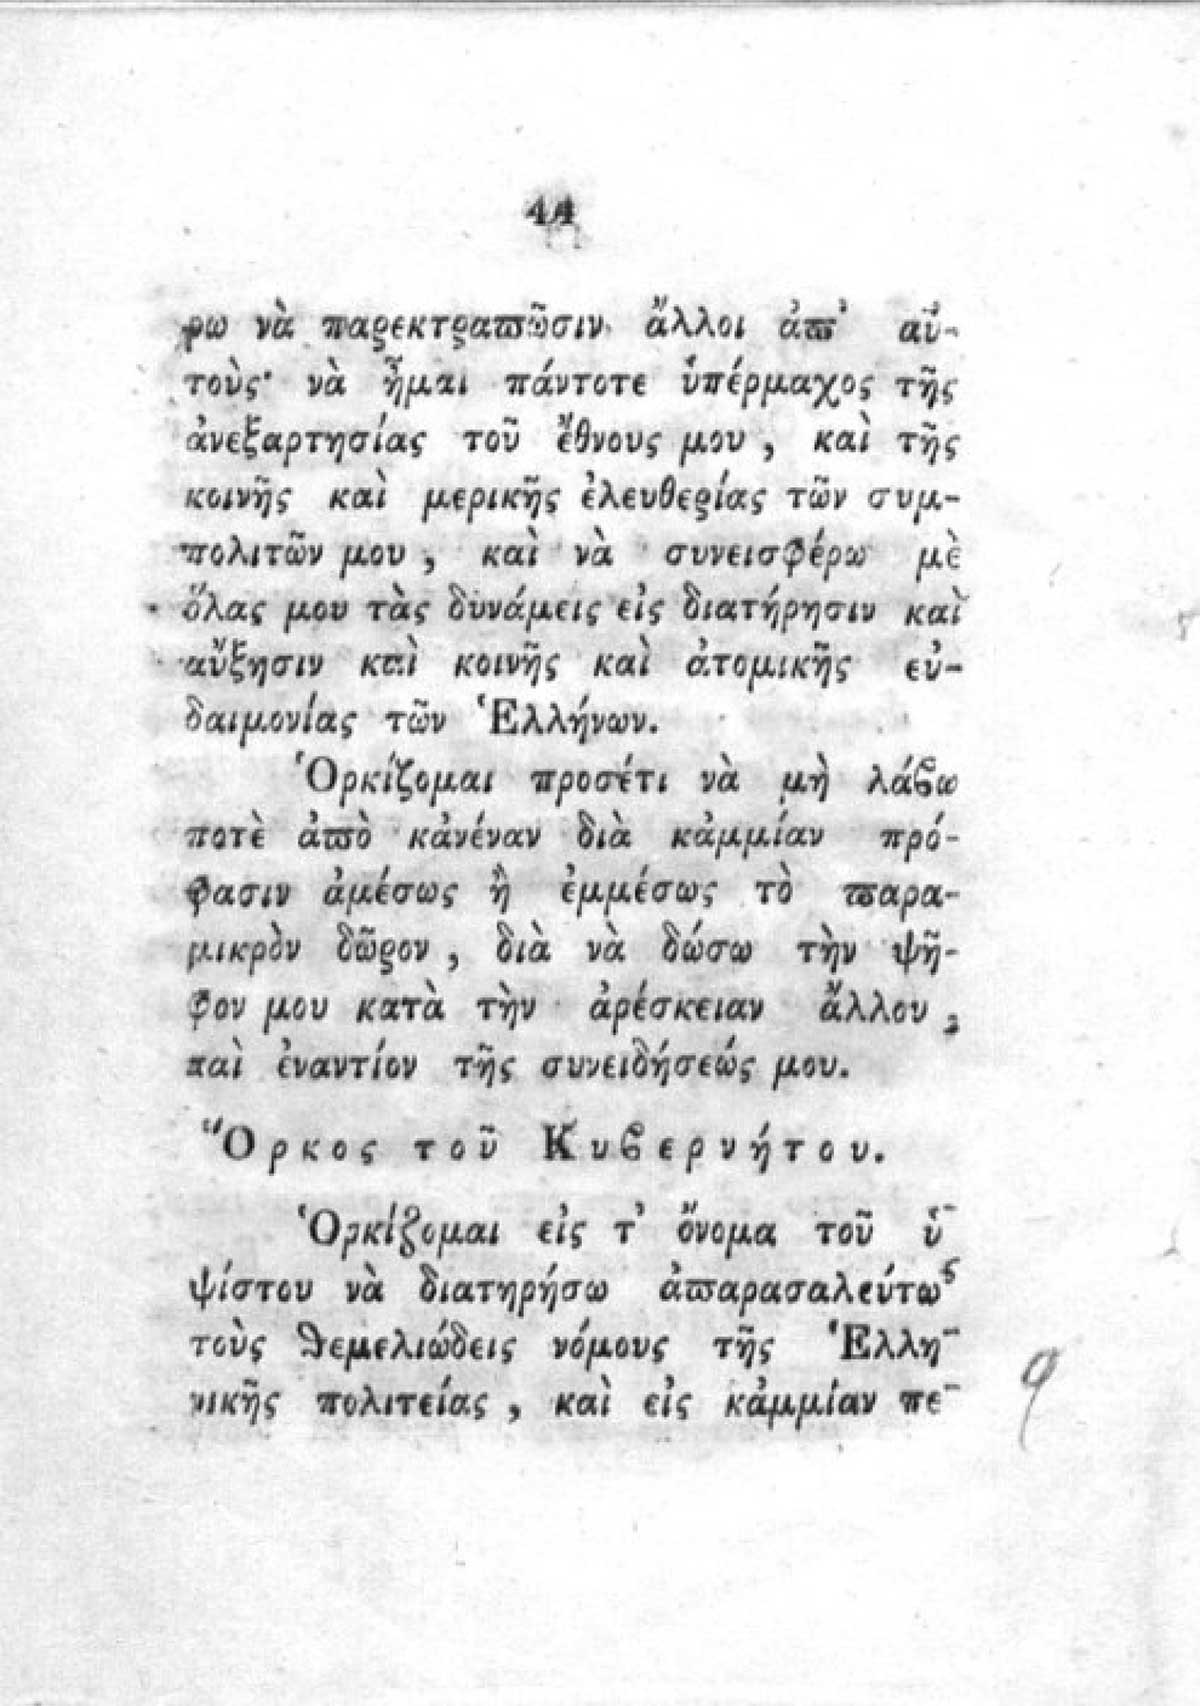 44
ρω νὰ παρεκτραπῶσιν ἄλλοι ἀπ' αὐ-
τοὺς· νὰ ἦμαι πάντοτε ὑπέρμαχος τῆς
ἀνεξαρτησίας τοῦ ἔθνους μου, καὶ τῆς
κοινῆς καὶ μερικῆς ἐλευθερίας τῶν συμ-
πολιτῶν μου, καὶ νὰ συνεισφέρω μὲ
ὅλας μου τὰς δυνάμεις εἰς διατήρησιν καὶ
αὔξησιν καὶ κοινῆς καὶ ἀτομικῆς εὐ-
δαιμονίας τῶν Ἑλλήνων.
Ὁρκίζομαι προσέτι νὰ μὴ λάβω
ποτὲ ἀπὸ κἀνέναν διὰ κἀμμίαν πρό-
φασιν ἀμέσως ἢ ἐμμέσως τὸ παρα-
μικρὸν δῶρον, διὰ νὰ δώσω τὴν ψῆ-
φον μου κατὰ τὴν ἀρέσκειαν ἄλλου,
καὶ ἐναντίον τῆς συνειδήσεώς μου.
Ὅρκος τοῦ Κυβερνήτου.
Ὁρκίζομαι εἰς τ' ὄνομα τοῦ ὑ-
ψίστου νὰ διατηρήσω ἀπαρασαλεύτως
τοὺς θεμελιώδεις νόμους τῆς Ἑλλη-
νικῆς πολιτείας, καὶ εἰς κἀμμίαν πε-